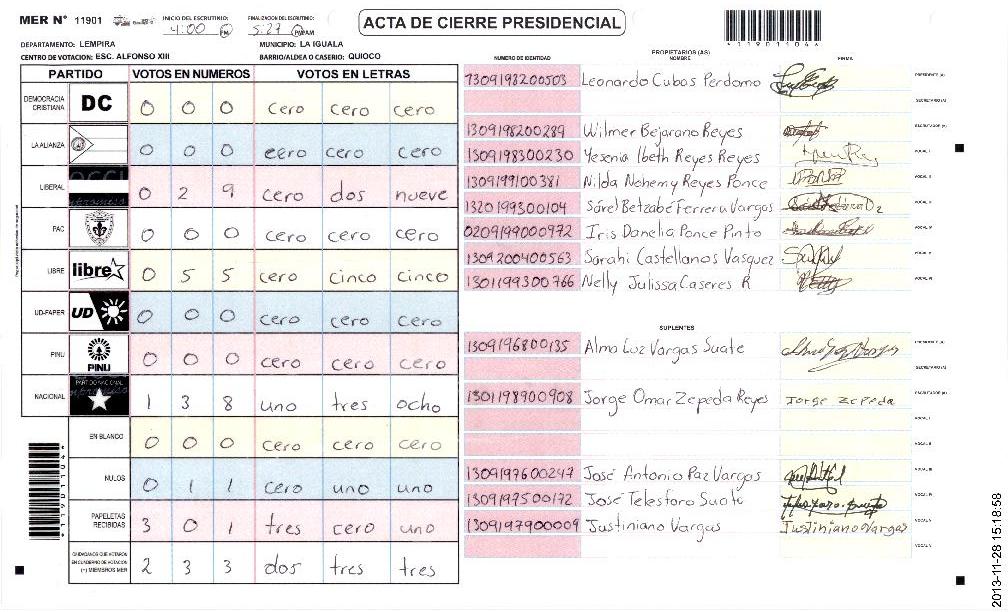 MER Nº 11901
INICIO DEL ESCRUTINIO: 4:00 PM
FINALIZACION DEL ESCRUTINIO: 5:27 PM
ACTA DE CIERRE PRESIDENCIAL
1190110
DEPARTAMENTO: LEMPIRA
MUNICIPIO: LA IGUALA
CENTRO DE VOTACION: ESC. ALFONSO XIII
BARRIO/ALDEA O CASERIO: QUIOCO
PARTIDO VOTOS EN NUMEROS VOTOS EN LETRAS
DEMOCRACIA CRISTIANA DC 0 0 0 cero cero cero
LA ALIANZA 0 0 0 cero cero cero
LIBERAL 0 2 9 cero dos nueve
PAC 0 0 0 cero cero cero
LIBRE libre 0 5 5 cero cinco cinco
UD-FAPER UD 0 0 0 cero cero cero
PINU PINU 0 0 0 cero cero cero
NACIONAL PARTIDO NACIONAL 1 3 8 uno tres ocho
EN BLANCO 0 0 0 cero cero cero
NULOS 0 1 1 cero uno uno
PAPELETAS RECIBIDAS 3 0 1 tres cero uno
CIUDADANOS QUE VOTARON EN CUADERNO DE VOTACION (+) MIEMBROS MER 2 3 3 dos tres tres
PROPIETARIOS (AS)
NUMERO DE IDENTIDAD NOMBRE FIRMA
1309198200503 Leonardo Cubas Perdomo PRESIDENTE (A)
SECRETARIO (A)
1309198200289 Wilmer Bejarano Reyes ESCRUTADOR (A)
1309198300230 Yesenia Ibeth Reyes Reyes VOCAL I
1309199100381 Nilda Nohemy Reyes Ponce VOCAL II
1320199300104 Sárel Betzabé Ferrera Vargas VOCAL III
0209199000972 Iris Danelia Ponce Pinto VOCAL IV
1309200400563 Sarahi Castellanos Vasquez VOCAL V
1301199300766 Nelly Julissa Caseres R VOCAL VI
SUPLENTES
1309196800135 Alma Luz Vargas Suate PRESIDENTE (A)
SECRETARIO (A)
1301198900908 Jorge Omar Zepeda Reyes Jorge Zepeda ESCRUTADOR (A)
VOCAL I
VOCAL II
1309197600247 José Antonio Paz Vargas VOCAL III
1309197500172 José Telesforo Suate VOCAL IV
1309197900009 Justiniano Vargas Justiniano Vargas VOCAL V
VOCAL VI
2013-11-28 15:18:58